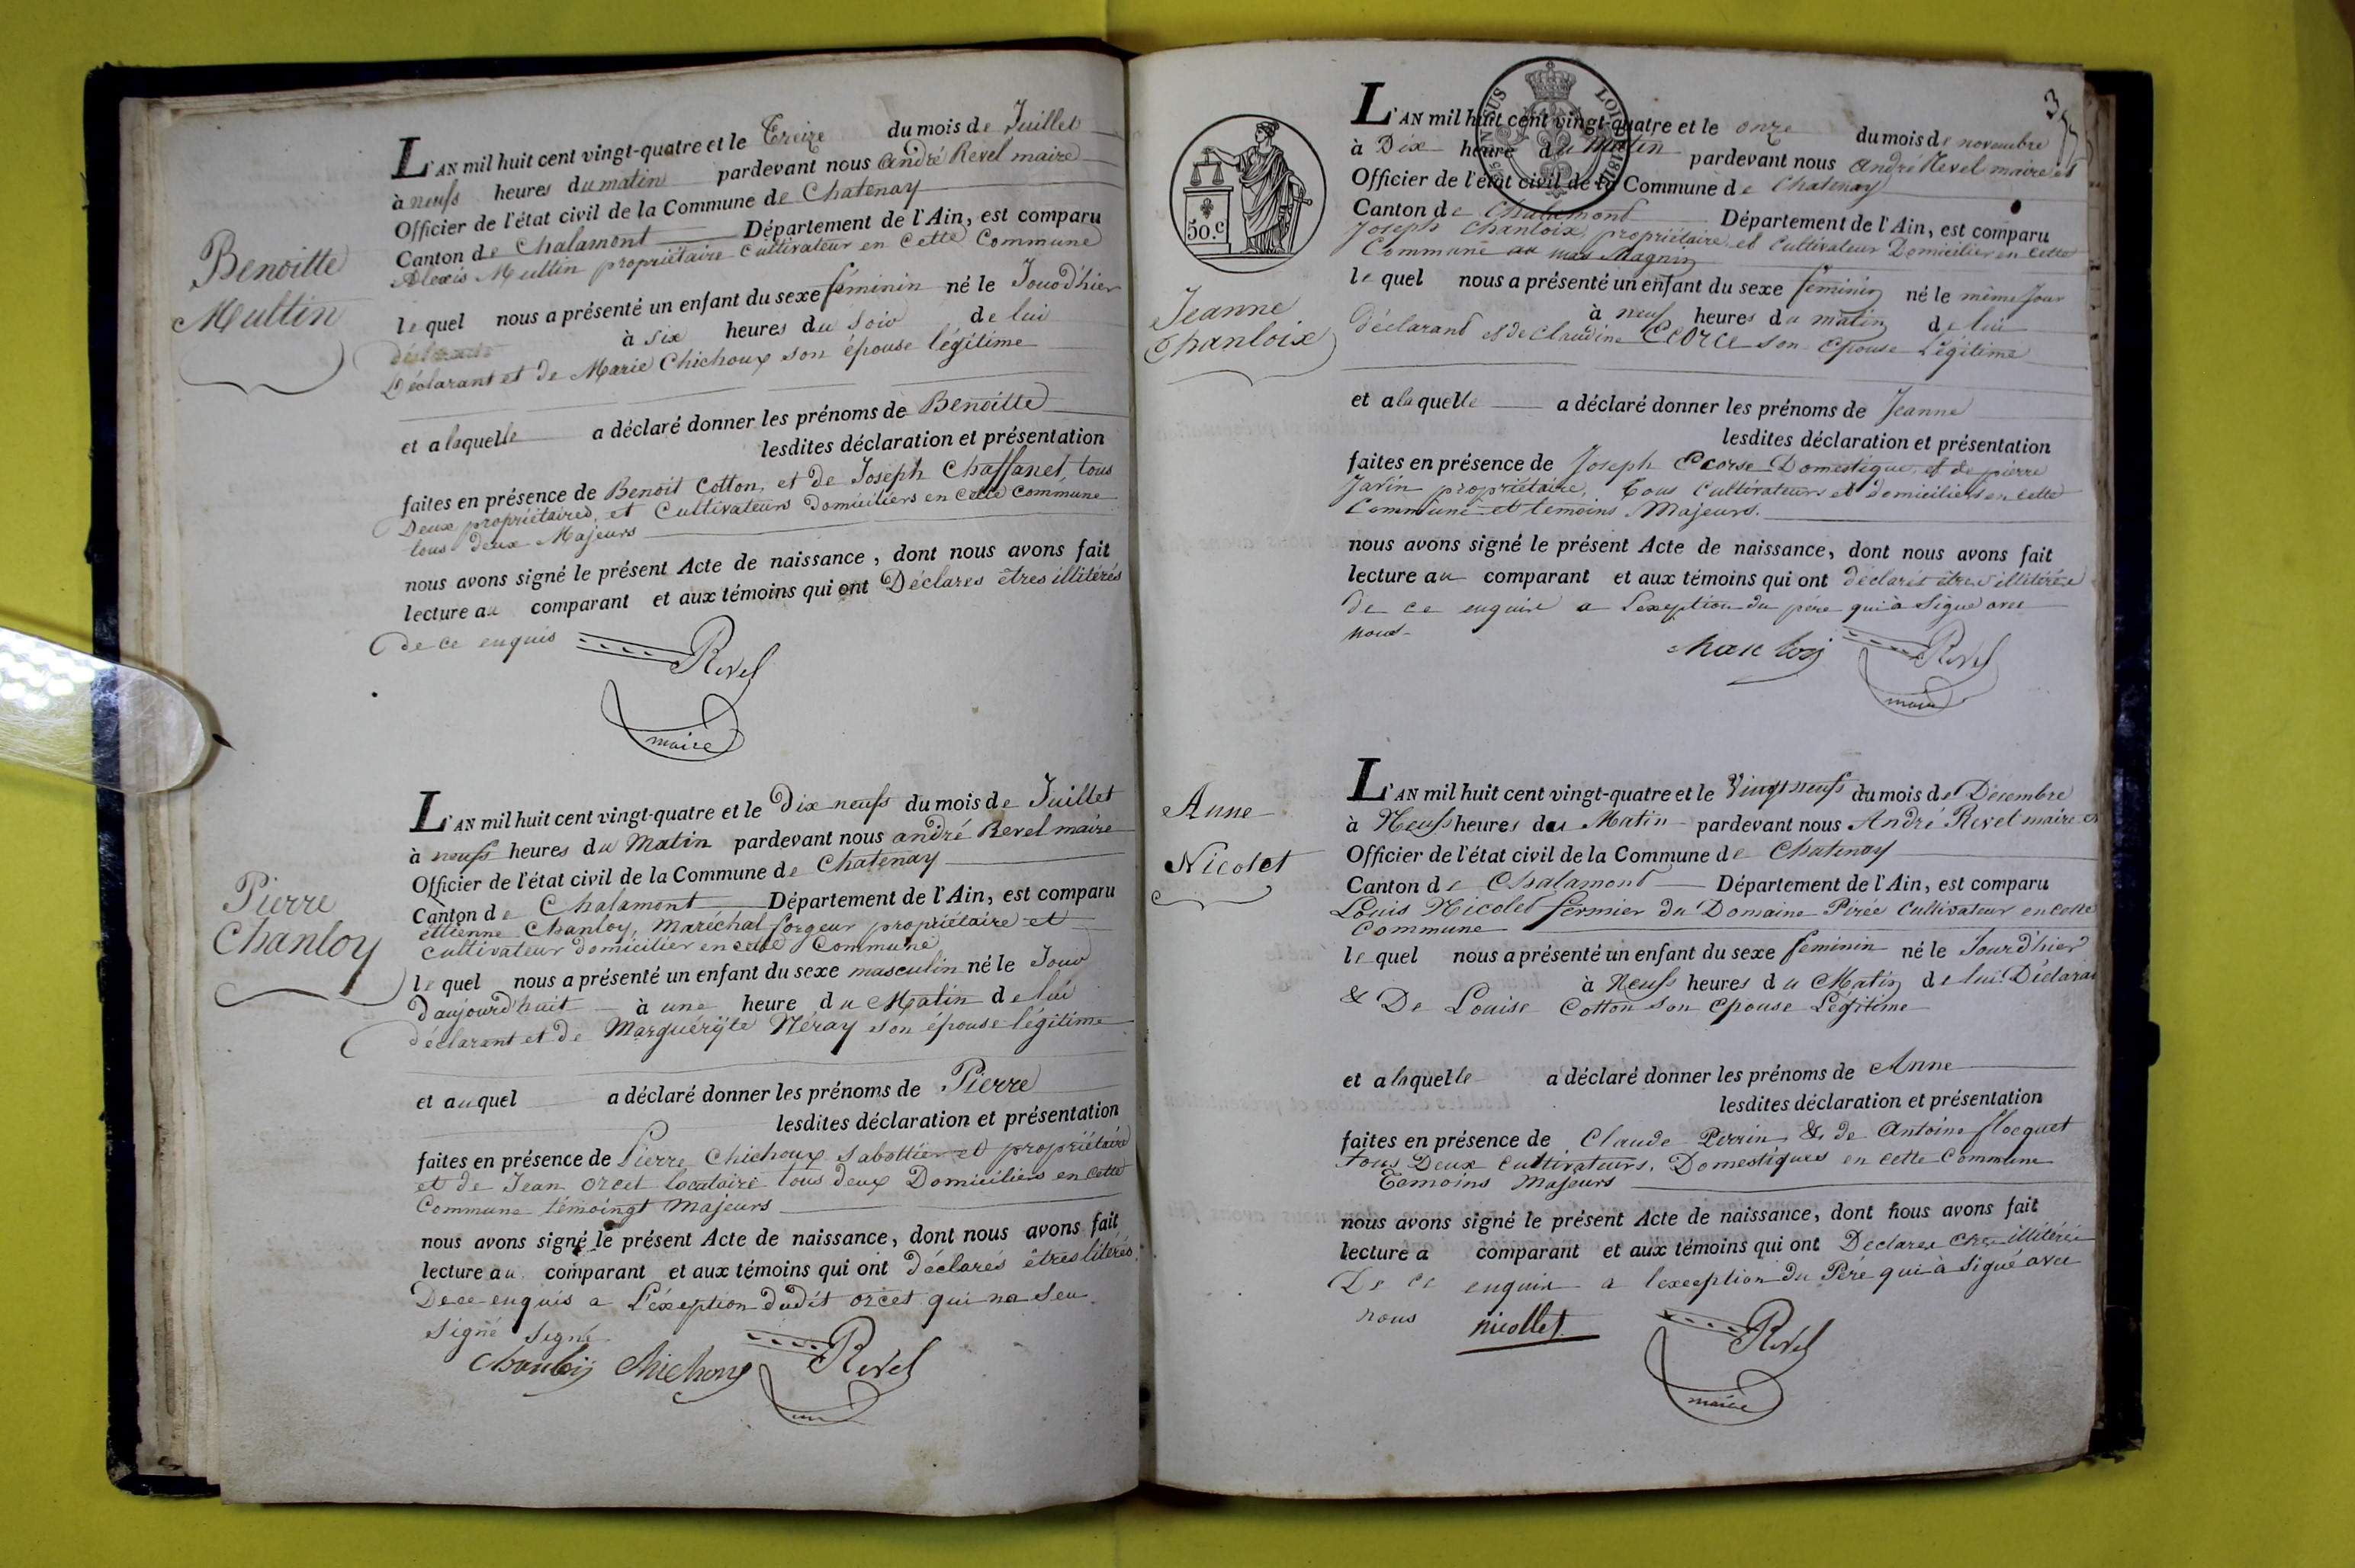 Benoitte
Multin
L'AN mil huit cent vingt-quatre et le Treize du mois de Juillet
à neufs heures du matin pardevant nous André Revel maire
Officier de l'état civil de la Commune de Chatenay
Canton de Chalamont Département de l'Ain, est comparu
Alexis Multin propriétaire Cultivateur en Cette Commune
le quel nous a présenté un enfant du sexe féminin né le Jourd'hier
à six heures du Soir de lui
Déclarant et de Marie Chichoux son épouse légitime
et a laquelle a déclaré donner les prénoms de Benoitte
lesdites déclaration et présentation
faites en présence de Benoit Cotton, et de Joseph Chaffanel, tous
Deux propriétaires, et Cultivateurs domiciliers en Cette Commune
tous deux Majeurs
nous avons signé le présent Acte de naissance, dont nous avons fait
lecture au comparant et aux témoins qui ont Déclares êtres illitérés
de ce enquis
Revel
maire
Pierre
Chanloy
L'AN mil huit cent vingt-quatre et le Dix neufs du mois de Juillet
à neufs heures du Matin pardevant nous andré Revel maire
Officier de l'état civil de la Commune de Chatenay
Canton de Chalamont Département de l'Ain, est comparu
ettienne Chanloy, Maréchal forgeur propriétaire et
Cultivateur domicilier en cette Commune
le quel nous a présenté un enfant du sexe masculin né le Jour
d'aujourd'huit à une heure du Matin de lui
déclarant et de Marguéryte Néray son épouse légitime
et auquel a déclaré donner les prénoms de Pierre
lesdites déclaration et présentation
faites en présence de Pierre Chichoux Sabottier et propriétaire
et de Jean Orcet locataire tous deux Domiciliers en cette
Commune témoingt Majeurs
nous avons signé le présent Acte de naissance, dont nous avons fait
lecture au comparant et aux témoins qui ont déclarés êtres litérés
De ce enquis a L'éxeption dudit orcet qui na Seu
Signé Signé
Chanloy Chichoux Revel
3
50.c
Jeanne
Chanloix
L'AN mil huit cent vingt-quatre et le onze du mois de novembre
à Dix heure du Matin pardevant nous André Revel maire et
Officier de l'état civil de la Commune de Chatenay
Canton de Chalamont Département de l'Ain, est comparu
Joseph Chanloix, propriétaire et Cultivateur Domicilier en Cette
Commune au mas Magnin
le quel nous a présenté un enfant du sexe féminin né le même Jour
à neuf heures du matin de lui
déclarant et de Claudine Ecorce son Epouse Légitime
et a laquelle a déclaré donner les prénoms de Jeanne
lesdites déclaration et présentation
faites en présence de Joseph Ecorse Domestique, et de pierre
Javin propriétaire, Tous Cultivateurs et domiciliers en Cette
Commune et témoins Majeurs.
nous avons signé le présent Acte de naissance, dont nous avons fait
lecture au comparant et aux témoins qui ont déclarés être illitérée
de ce enquis a L'exeption du père qui à Signé avec
nous
Chanloy Revel
maire
Anne
Nicolet
L'AN mil huit cent vingt-quatre et le Vingt neufs du mois de Décembre
à Neufs heures du Matin pardevant nous André Revel maire et
Officier de l'état civil de la Commune de Chatenay
Canton de Chalamont Département de l'Ain, est comparu
Louis Nicolet fermier du Domaine Pirée Cultivateur en Cette
Commune
le quel nous a présenté un enfant du sexe féminin né le Jourd'hier
à Neufs heures du Matin de lui Déclarant
& De Louise Cotton son Epouse Légitime
et a laquelle a déclaré donner les prénoms de Anne
lesdites déclaration et présentation
faites en présence de Claude Perrin & de Antoine flocquet
tous Deux Cultivateurs, Domestiques en Cette Commune
Temoins Majeurs
nous avons signé le présent Acte de naissance, dont nous avons fait
lecture a comparant et aux témoins qui ont Déclares être illitérée
De ce enquis a l'exception du Père qui à Signé avec
nous nicollet Revel
maire